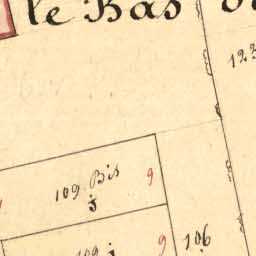 le Bas
123
109 Bis 9
j
109 j 9
106